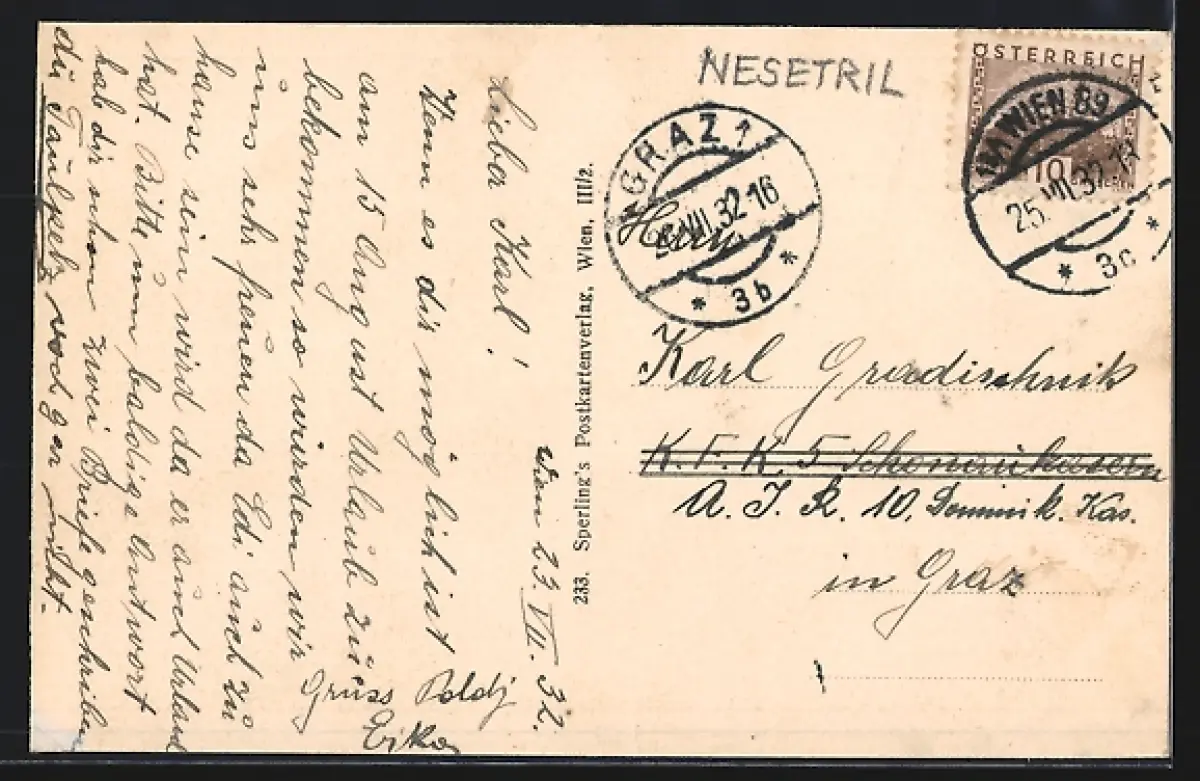 Wien 23. VII. 32.
Lieber Karl!
Wenn es dir möglich ist
am 15 August Urlaub zu
bekommen so würden wir
uns sehr freuen da Edi auch zu
hause sein wird da er auch Urlaub
hat. Bitte um baldige Antwort
hab dir schon zwei Briefe geschrieben
du Faulpelz und gar nicht.
Gruss Poldj
233. Sperling's Postkartenverlag, Wien, III/2.
NESETRIL
ÖSTERREICH
10
GRAZ 1
VII.32-16
* 3b *
WIEN 89
25.VII.32
* 3c *
Karl Gradischnik
K. F. K. 5 Schönaukasern
A. J. R. 10. Dominik. Kas.
in Graz